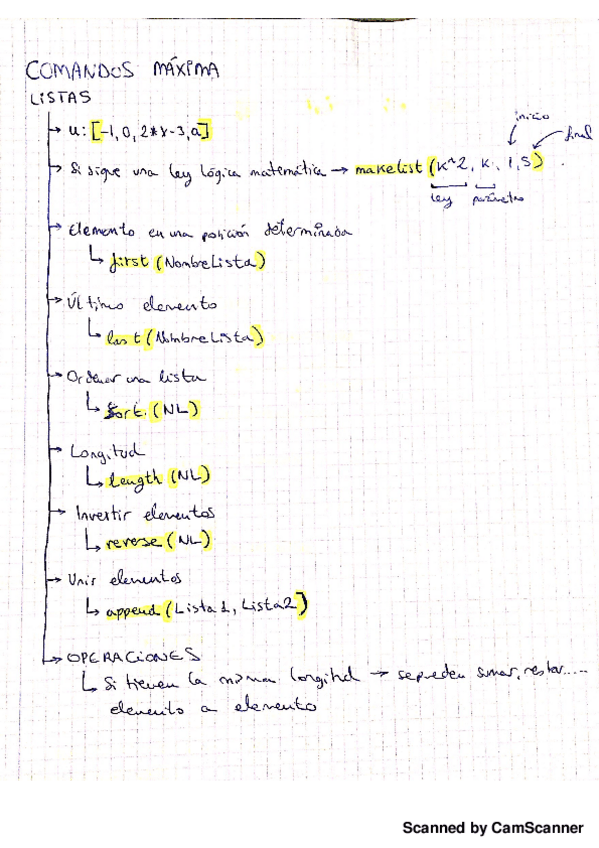 COMANDOS MÁXIMA
LISTAS
→ u: [-1, 0, 2*x-3, a]
inicio
final
→ Si sigue una ley lógica matemática → makelist (k^2, k, 1, 5)
ley parámetro
→ Elemento en una posición determinada
↳ first (NombreLista)
→ Último elemento
↳ last (NombreLista)
→ Ordenar una lista
↳ sort (NL)
→ Longitud
↳ length (NL)
→ Invertir elementos
↳ reverse (NL)
→ Unir elementos
↳ append (Lista1, Lista2)
→ OPERACIONES
↳ Si tienen la misma longitud → se pueden sumar, restar.....
elemento a elemento
Scanned by CamScanner